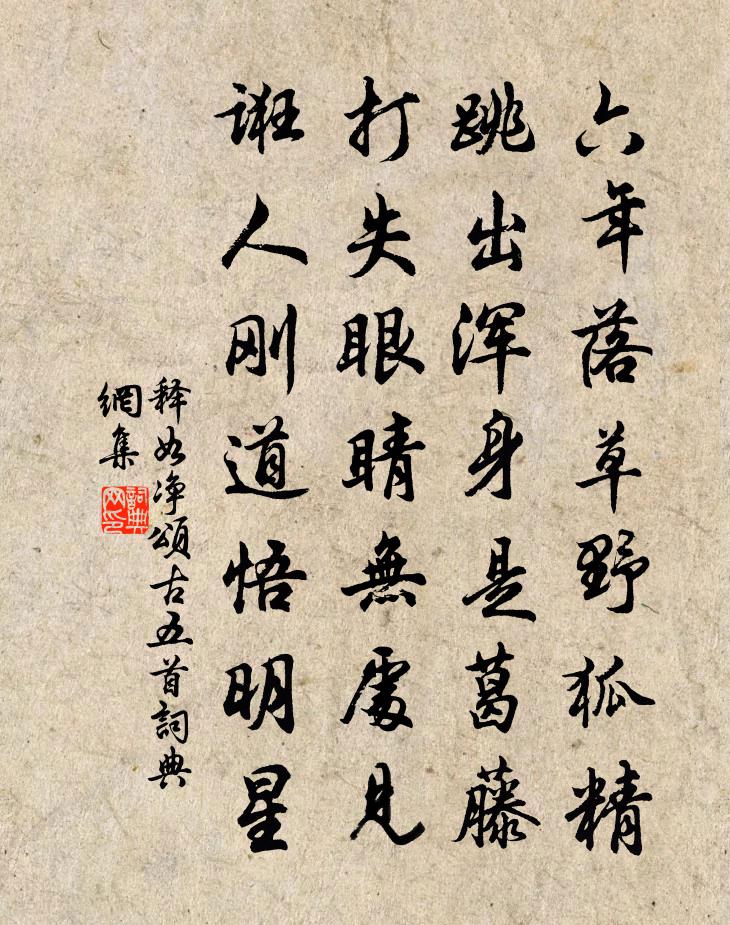 六年落草野狐精
跳出浑身是葛藤
打失眼睛無處見
誑人刚道悟明星
释如净頌古五首詞典
網集
詞典
网印